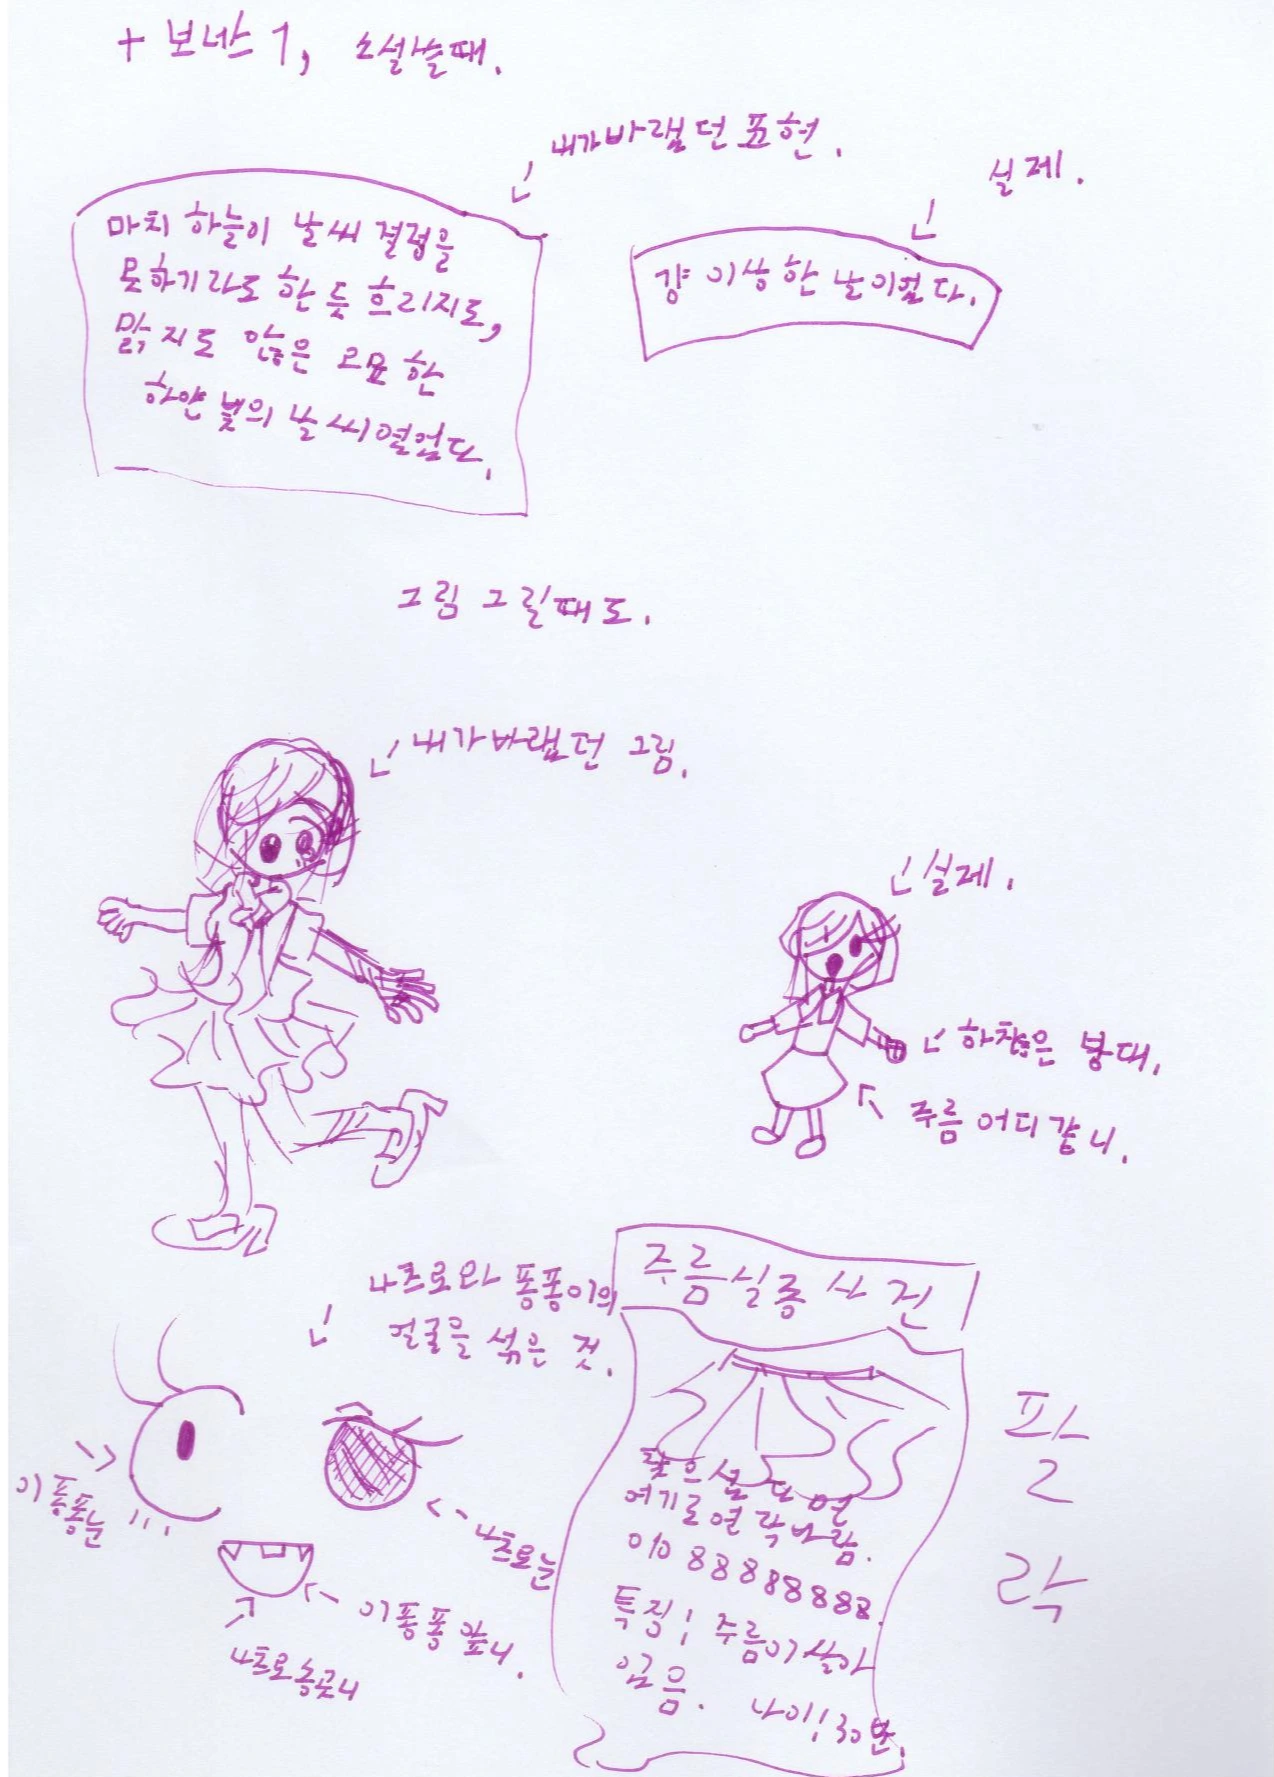 + 보너스 1, 소설쓸때.
내가바랬던 표현.
실제.
마치 하늘이 날씨 결정을
못하기라도 한 듯 흐리지도,
맑지도 않은 고묘한
하얀 빛의 날씨였었다.
걍 이상한 날이었다.
그림 그릴때도.
내가바랬던 그림.
실제.
하찮은 붕대.
주름 어디갔니.
나츠로와 퐁퐁이의
얼굴을 섞은 것.
이퐁퐁눈
나츠로눈
이퐁퐁앞니.
나츠로송곳니
주름실종사건
찾으셨다면
여기로연락바람.
010 88888888.
특징; 주름이살아
있음. 나이; 30분.